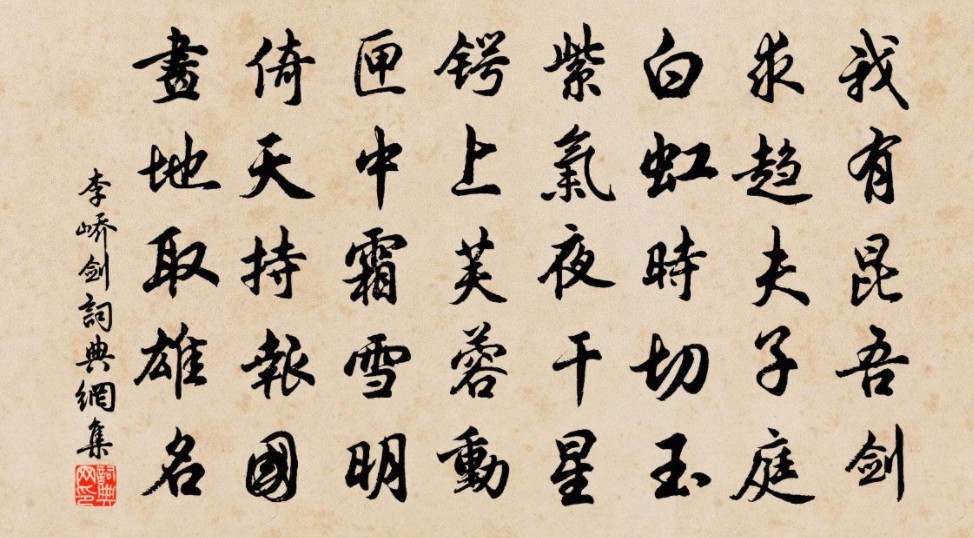 我有昆吾剑
求趋夫子庭
白虹時切玉
紫氣夜干星
鍔上芙蓉動
匣中霜雪明
倚天持報國
畫地取雄名
李嶠剑詞典網集
詞典网印